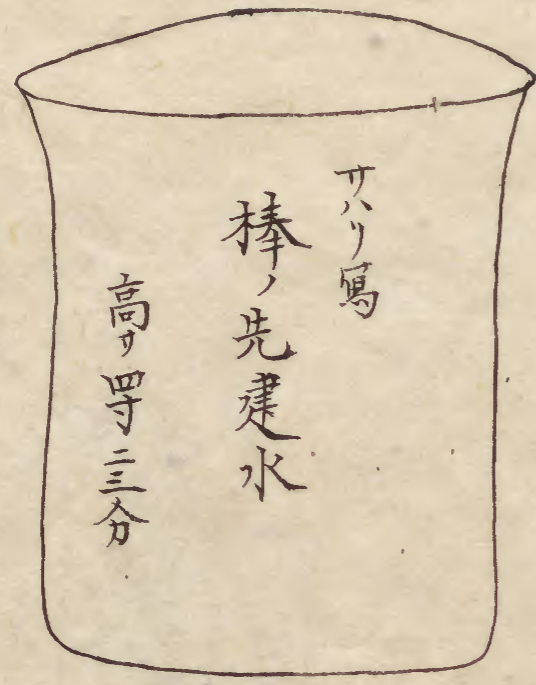 サハリ写
棒ノ先建水
高サ四寸二三分